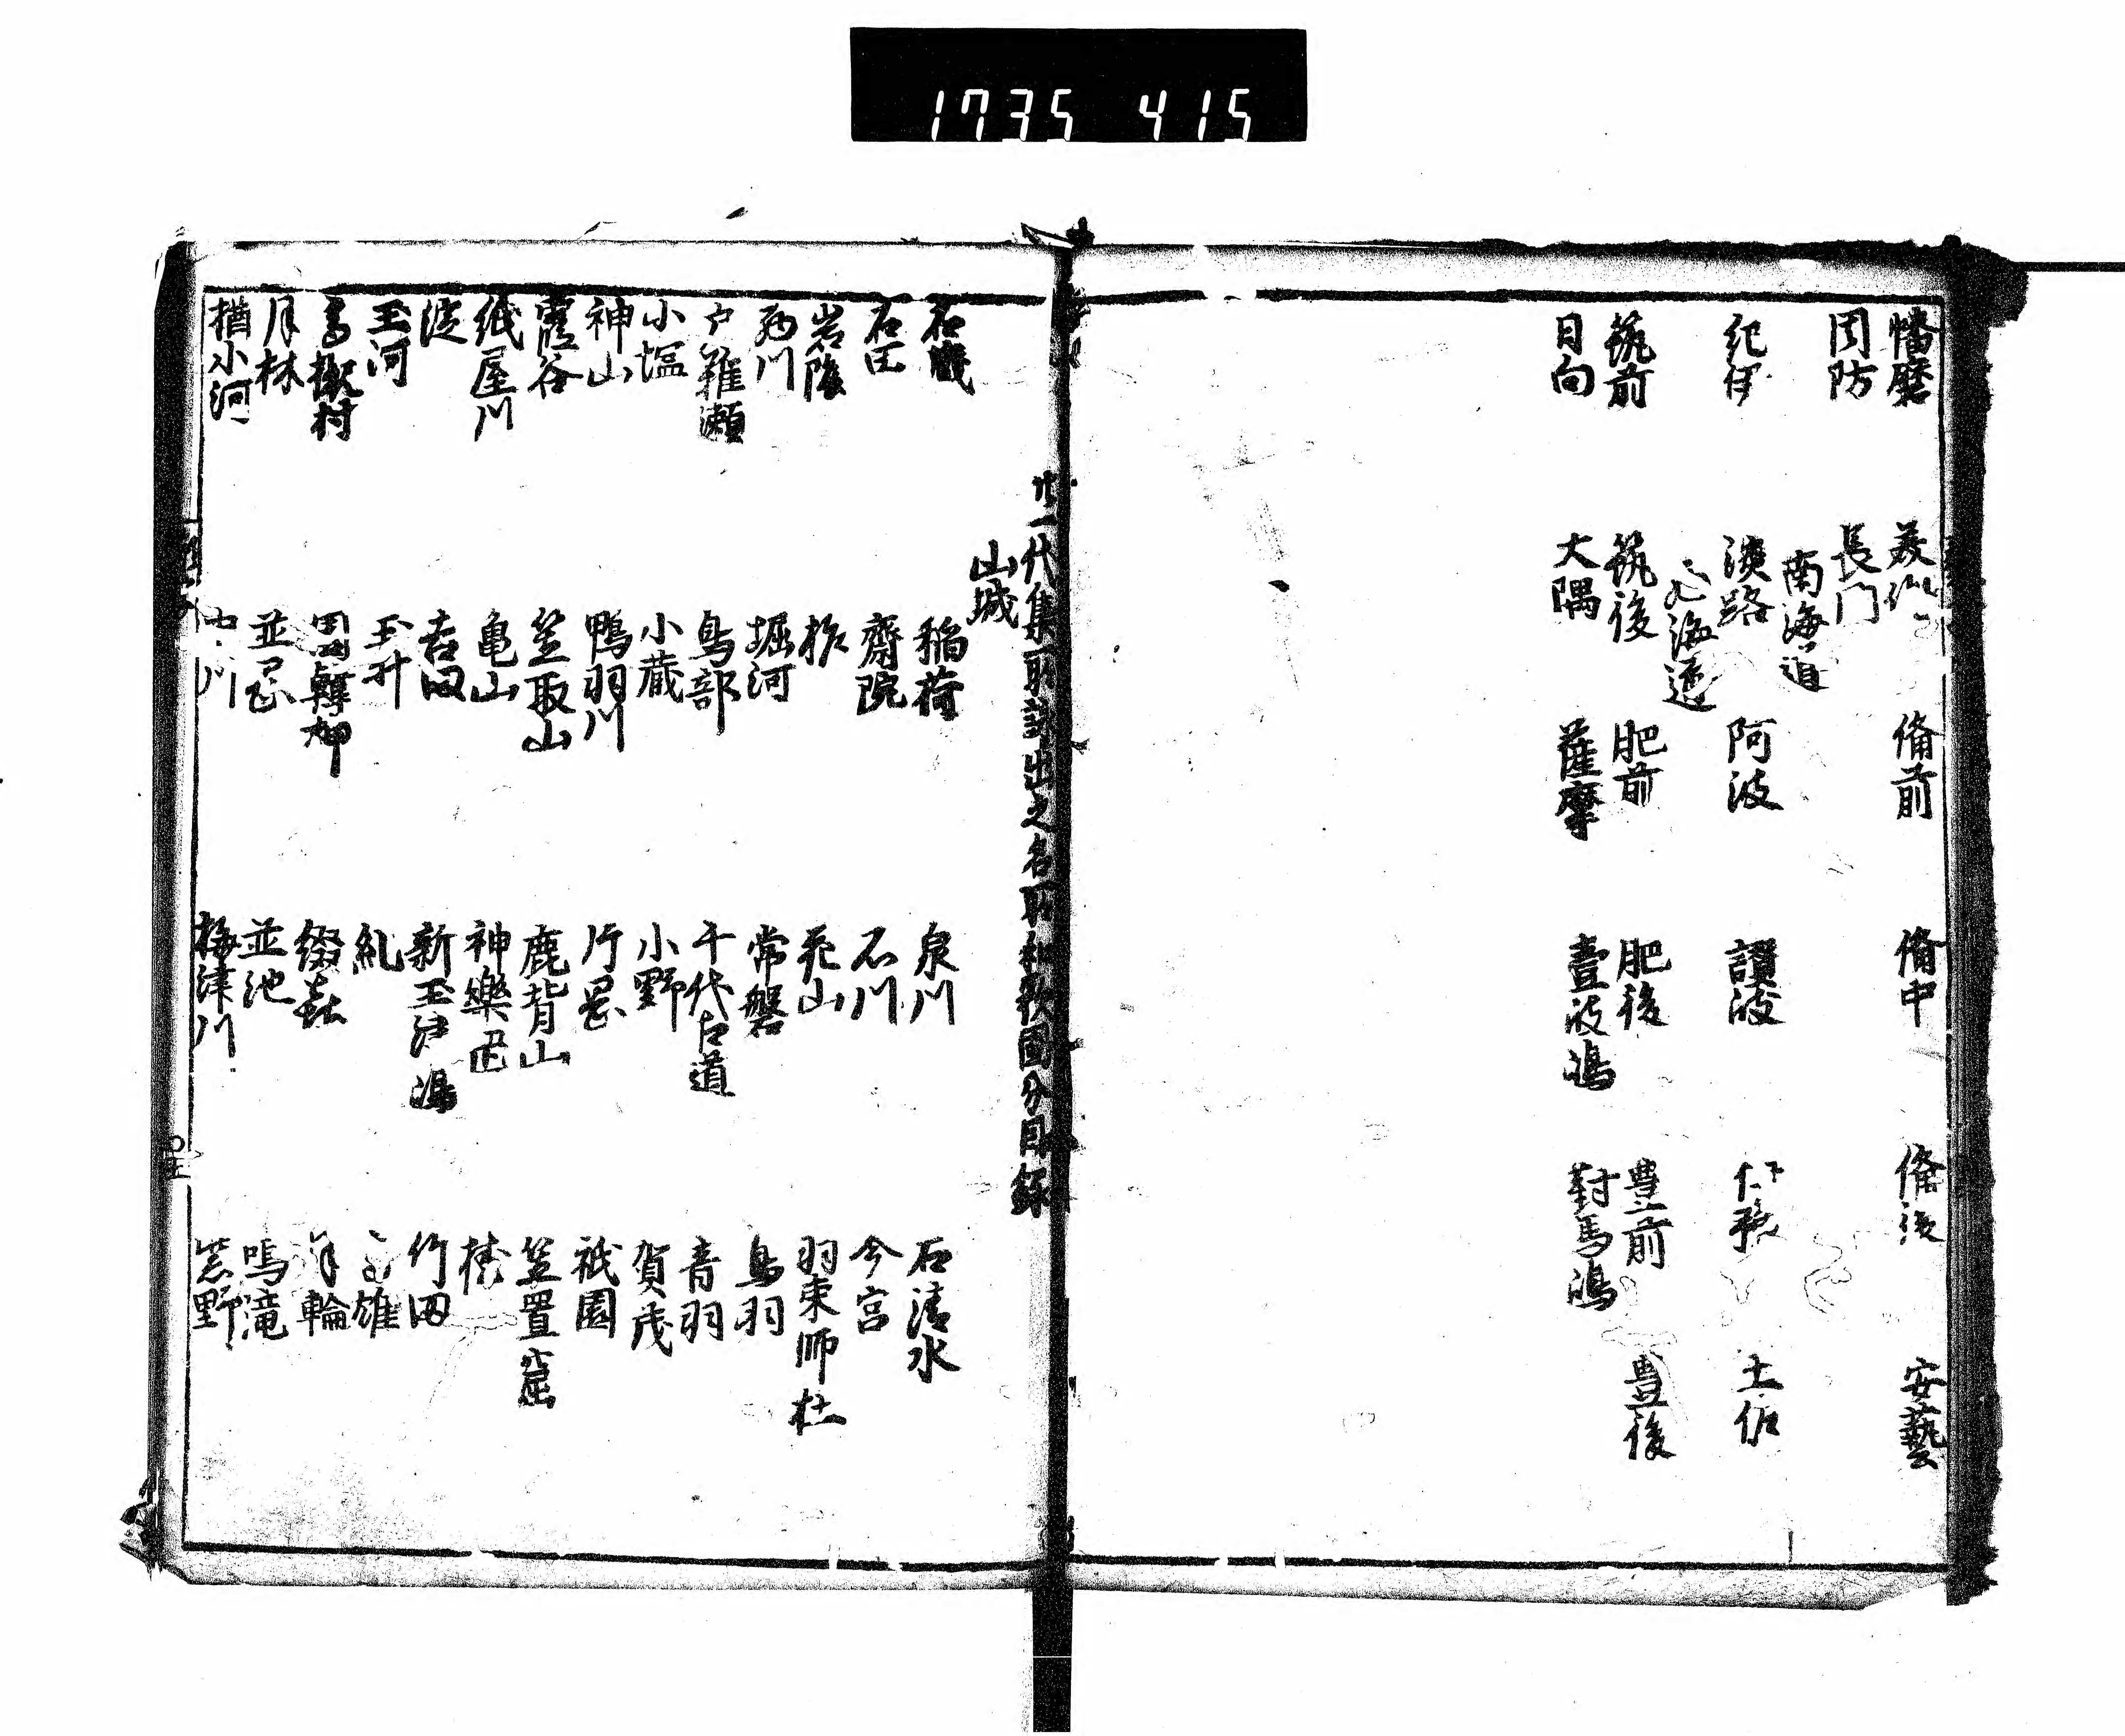 1735 415
幡磨 美作 備前 備中 備後 安藝
周防 長門
南海道
紀伊 淡路 阿波 讃岐 伊豫 土佐
西海道
筑前 筑後 肥前 肥後 豊前 豊後
日向 大隅 薩摩 壹岐嶋 對馬嶋
廿一代集所詠出之名所和歌國分目録
山城
石
稲荷 泉川 石清水
石田 齋院 石川 今宮
岩陰 柞 花山 羽束師杜
堀河 常磐 鳥羽
戸難瀬 鳥部 千代古道 音羽
小塩 小蔵 小野 賀茂
神山 鴨羽川 片岡 祇園
霞谷 笠取山 鹿背山 笠置窟
紙屋川 亀山 神樂岡 桂
淀 吉田 新玉津嶋 竹田
玉河 玉井 糺
高槻村 園韓神 綴喜 月輪
月林 並岡 並池 鳴滝
楢小河 中川 梅津川